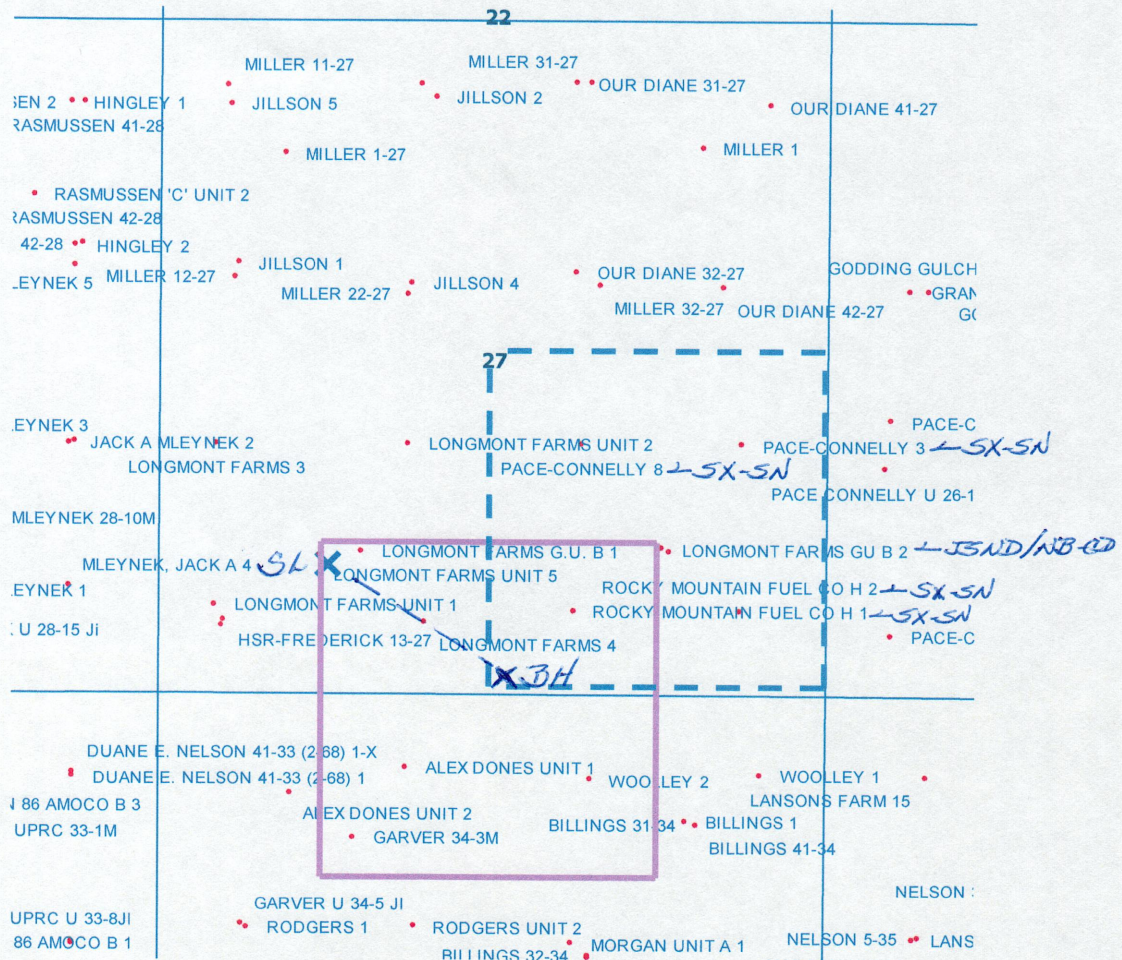 22
MILLER 11-27
MILLER 31-27
OUR DIANE 31-27
SEN 2
HINGLEY 1
JILLSON 5
JILLSON 2
OUR DIANE 41-27
RASMUSSEN 41-28
MILLER 1-27
MILLER 1
RASMUSSEN 'C' UNIT 2
RASMUSSEN 42-28
42-28
HINGLEY 2
LEYNEK 5
MILLER 12-27
JILLSON 1
MILLER 22-27
JILLSON 4
OUR DIANE 32-27
GODDING GULCH
GRAN
MILLER 32-27
OUR DIANE 42-27
GO
27
LEYNEK 3
JACK A MLEYNEK 2
LONGMONT FARMS 3
LONGMONT FARMS UNIT 2
PACE-C
PACE-CONNELLY 3 SX-SN
PACE-CONNELLY 8 SX-SN
PACE CONNELLY U 26-1
MLEYNEK 28-10M
MLEYNEK, JACK A 4
SL
LONGMONT FARMS G.U. B 1
LONGMONT FARMS GU B 2 JSND/NB-CD
LONGMONT FARMS UNIT 5
LEYNEK 1
ROCKY MOUNTAIN FUEL CO H 2 SX-SN
LONGMONT FARMS UNIT 1
ROCKY MOUNTAIN FUEL CO H 1 SX-SN
U 28-15 Ji
HSR-FREDERICK 13-27
LONGMONT FARMS 4
PACE-C
BH
DUANE E. NELSON 41-33 (2-68) 1-X
DUANE E. NELSON 41-33 (2-68) 1
ALEX DONES UNIT 1
WOOLLEY 2
WOOLLEY 1
86 AMOCO B 3
LANSONS FARM 15
UPRC 33-1M
ALEX DONES UNIT 2
BILLINGS 31-34
BILLINGS 1
GARVER 34-3M
BILLINGS 41-34
NELSON
GARVER U 34-5 JI
UPRC U 33-8JI
RODGERS 1
RODGERS UNIT 2
86 AMOCO B 1
BILLINGS 32-34
MORGAN UNIT A 1
NELSON 5-35
LANS